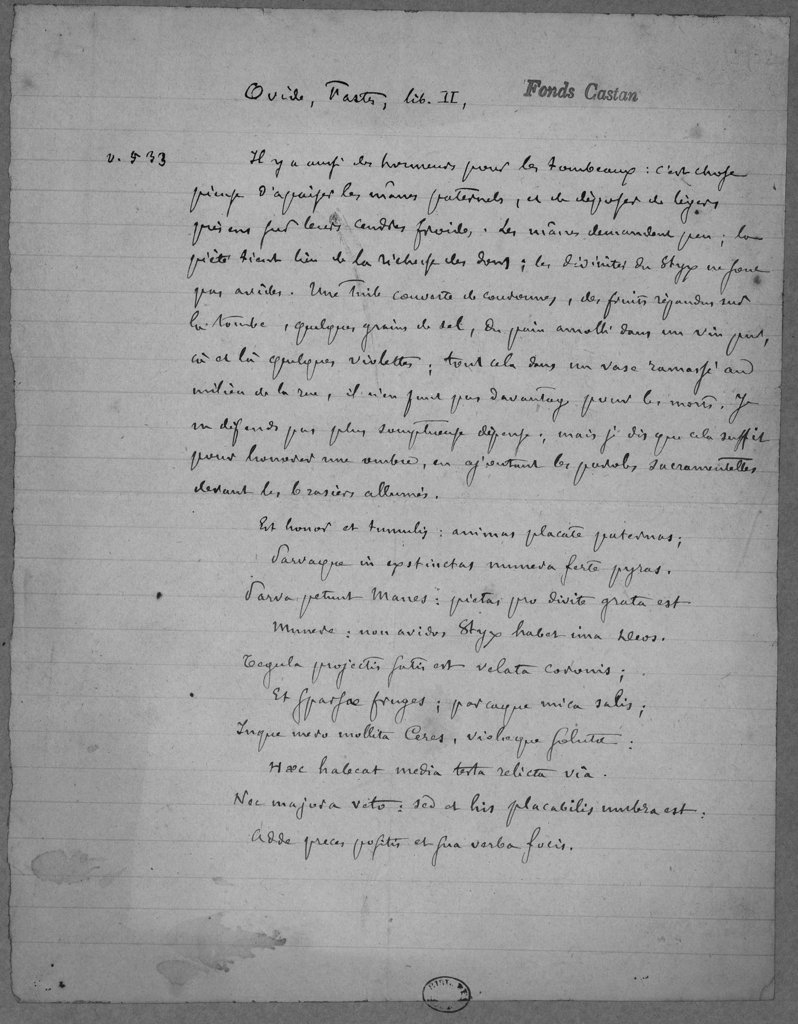 Ovide, Fastes, lib. II,
Fonds Castan
v. 533
Il y a aussi des honneurs pour les tombeaux : c'est chose
pieuse d'apaiser les mânes paternels, et de déposer de légers
présens sur leurs cendres froides. Les mânes demandent peu ; la
piété tient lieu de la richesse des dons ; les divinités du Styx ne sont
pas avides. Une tuile couverte de couronnes, des fruits répandus sur
la tombe, quelques grains de sel, du pain amolli dans un vin pur,
çà et là quelques violettes ; tout cela dans un vase ramassé au
milieu de la rue, il n'en faut pas davantage pour les morts. Je
ne défends pas plus somptueuse dépense ; mais je dis que cela suffit
pour honorer une ombre, en ajoutant les paroles sacramentelles
devant les brasiers allumés.
Est honor et tumulis : animas placate paternas ;
Parvaque in exstinctas munera ferte pyras.
Parva petunt Manes : pietas pro divite grata est
Munere : non avidos Styx habet ima Deos.
Tegula projectis satis est velata coronis ;
Et sparsæ fruges ; parcaque mica salis ;
Inque mero mollita Ceres, violæque solutæ :
Hæc habeat media testa relicta viâ.
Nec majora veto : sed et his placabilis umbra est :
Adde preces positis et sua verba focis.